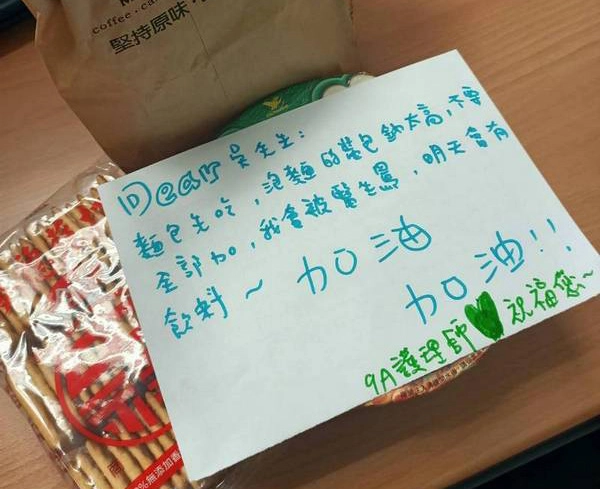 coffee
堅持原味
Dear 吳先生:
麵包先吃,泡麵的醬包鈉太高,不要
全部加,我會被醫生罵,明天會有
飲料~ 加油
加油!!
9A護理師 祝福您~
無添加香